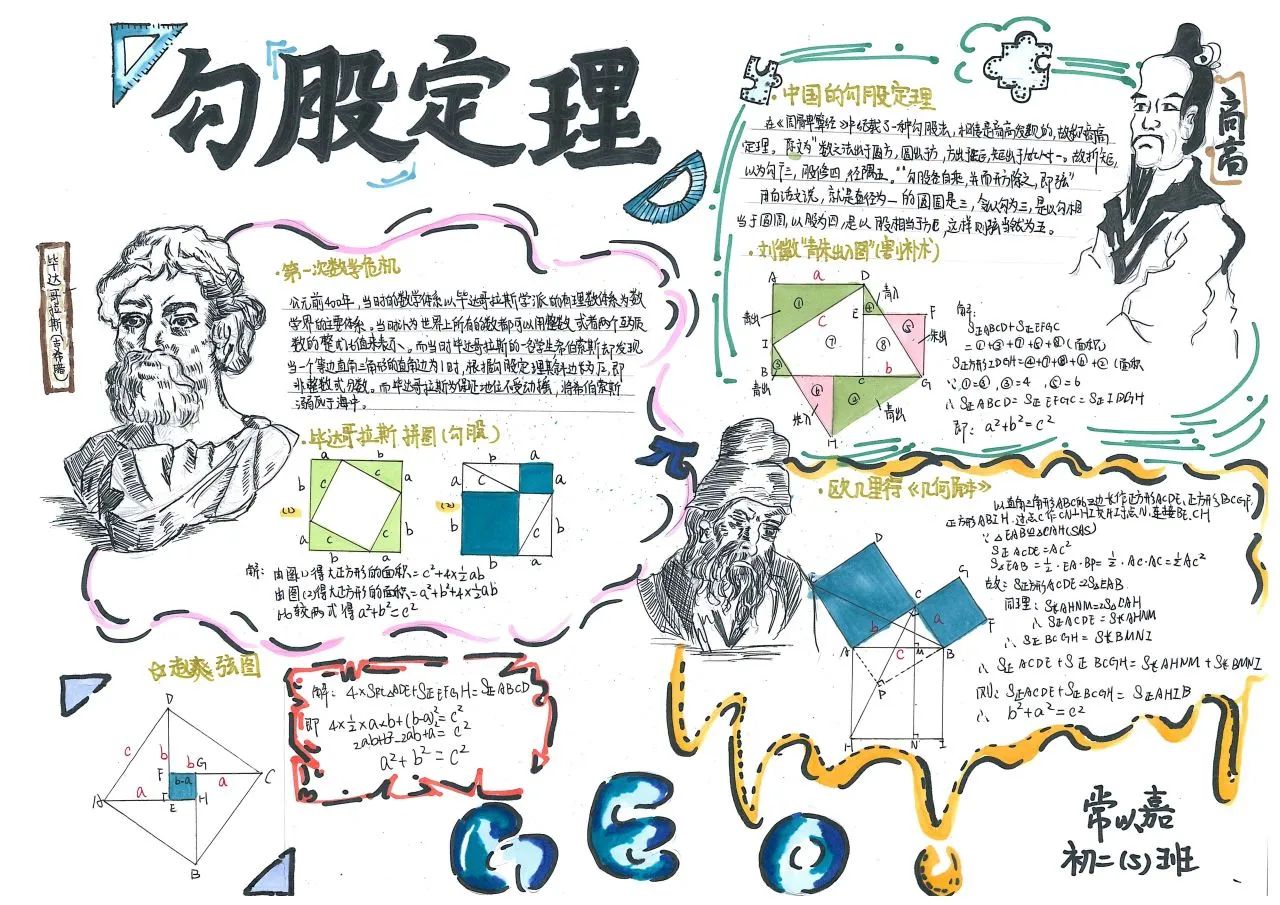 勾股定理
毕达哥拉斯(古希腊)
·第一次数学危机
公元前400年，当时的数学体系以毕达哥拉斯学派的有理数体系为数
学界的主要体系。当时认为世界上所有的数都可以用整数或者两个互质
数的整式比值来表示。而当时毕达哥拉斯的一名学生希伯索斯却发现
当一个等边直角三角形的直角边为1时，根据勾股定理其斜边长为√2，即
非整数或分数。而毕达哥拉斯为保证地位不受动摇，将希伯索斯
溺死于海中。
·毕达哥拉斯拼图(勾股)
(1)
a b
b c a
c
c
a c b
b a
(2)
b a
a c a
b c b
b a
解：由图(1)得大正方形的面积=c²+4×½ab
由图(2)得大正方形的面积=a²+b²+4×½ab
比较两式得a²+b²=c²
☆赵爽弦图
D
c b
F b G
A a b-a a C
E H
B
解：4×SRt△ADE+S正EFGH=S正ABCD
即 4×½×a×b+(b-a)²=c²
2ab+b²-2ab+a²=c²
a²+b²=c²
商高
·中国的勾股定理
在《周髀算经》中记载了一种勾股法，相传是商高发现的，故称商高
定理。原文为"数之法出于圆方，圆出于方，方出于矩，矩出于九九八十一。故折矩，
以为勾广三，股修四，径隅五。""勾股各自乘，并而开方除之，即弦"
用白话文说，就是直径为一的圆周是三，
当于圆周，以股为四，是以股相当于方，这样则隅当然为五。
·刘徽"青朱出入图"(割补术)
A a D
青入
青出 ① ④ E F
c ⑤ 朱出
I ⑦ ⑧
③ b
B C G
青出 ⑥ ② 青出
朱入
H
解：
S正ABCD+S正EFGC
=①+③+⑦+⑤+⑧(面积)
S正方形IDGH=④+⑦+⑧+⑥+②(面积)
∴S正ABCD=S正EFGC=S正IDGH
即：a²+b²=c²
π
·欧几里得《几何原本》
以直角三角形ABC的三边长作正方形ACDE、正方形BCGF、
正方形ABIH，过点C作CN⊥HI交HI于点N，连接BE、CH
∵△EAB≌△CAH(SAS)
S正ACDE=AC²
S△EAB=½·EA·BP=½·AC·AC=½AC²
故：S正方形ACDE=2S△EAB
同理：S长AHNM=2S△CAH
∴S正ACDE=S长AHNM
∴S正BCGH=S长BMNI
∴S正ACDE+S正BCGH=S长AHNM+S长BMNI
则：S正ACDE+S正BCGH=S正AHIB
∴ b²+a²=c²
D
G
C
F
b a
A c M B
P
H N I
GEO!
常以嘉
初二(5)班